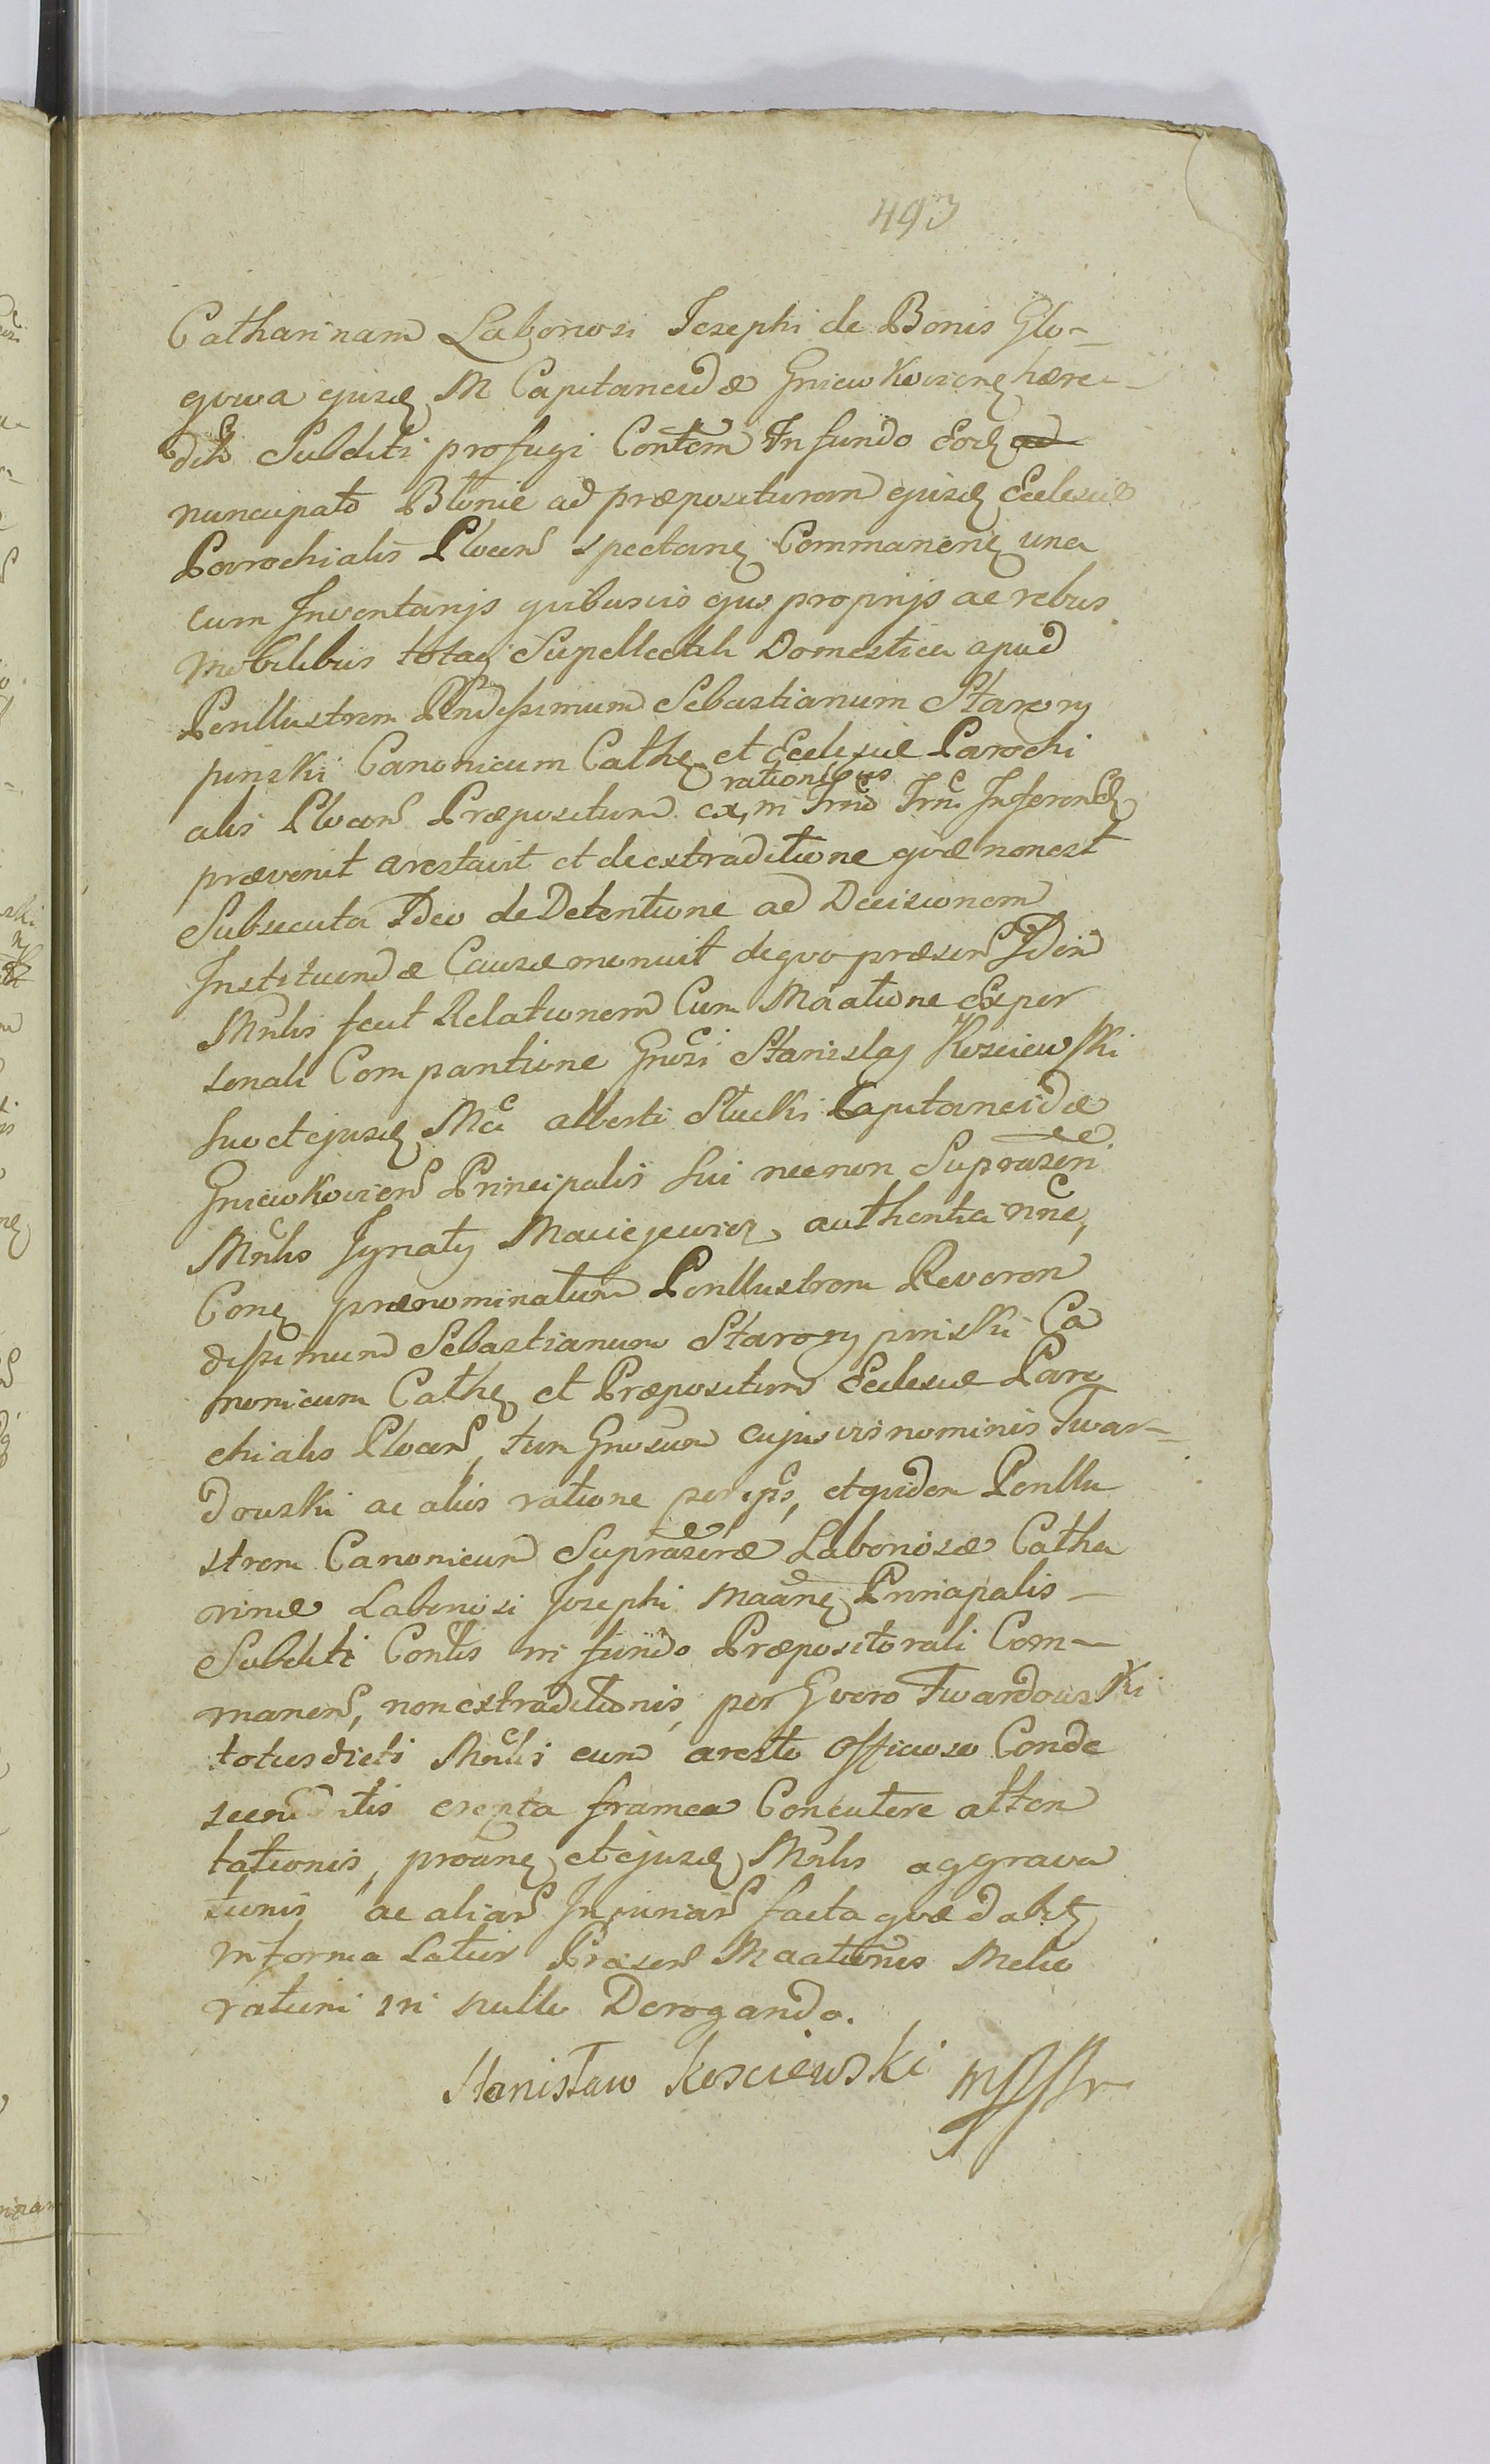 493
Catharinam Laboriosi Josephi de Bonis Glo-
gowa ejusd M Capitaneidæ Gniewkovien hære-
dit Subditi profugi Contem In fundo Eod ad
nuncupato Błonie ad præposituram ejusd Ecclesiæ
Parochialis Plocen spectan Commanen una
cum Inventarijs quibusvis ejus proprijs ac rebus
Mobilibus totaq Supellectili Domestica apud
Perillustrem Rndissimum Sebastianum Staro
pinski Canonicum Cathe et Ecclesiæ Parochi
alis Plocen Præpositum ex rationibus in Inferen
prævenit arestavit et de extraditione quæ non est
Subsecuta Ideo de Detentione ad Decisionem
Instituendæ Causæ monuit de quo præsen Idem
Mnlis fecit Relationem Cum Maatione Exper
sonali Comparitione Gnosi Stanislaj Kosciewski
suo et ejusd Mci Alberti Słucki Capitaneidæ
Gniewkovien Principalis sui necnon Suprascri
Mnlis Ignatij Maciejewicz authentica nne,
Con prænominatum Perillustrem Reveren
dissimum Sebastianum Staro pinski Ca
nonicum Cathe et Præpositum Ecclesiæ Paro
chialis Plocen, tum Gnosum cujusvis nominis Twar-
dowski ac alios ratione per ipsos, et quidem Perillu
strem Canonicum Suprascræ Laboriosæ Catha
rinæ Laboriosi Josephi Maan Principalis
Subditi Contlis in fundo Præpositorali Com-
manen, non extraditionis, per G vero Twardowski
toties dicti Mnlis cum aresto Officioso Conde
scendentis erepta framea Concutere atten
tationis, proan et ejusd Mnlis aggrava
tionis ac aliar Injuriar facta quæ dabit
in forma Latior Præsen Maationis Melio
rationi in nullo Derogando.
Stanisław Kosciewski mppr